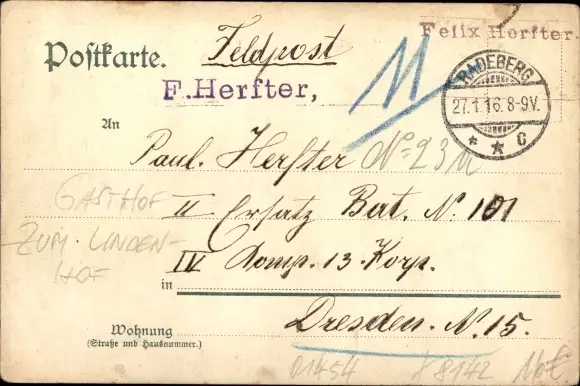 Felix Herfter.
Postkarte. Feldpost
F. Herfter,
11
RADEBERG
27.1.16.8-9V.
* * c
An
Paul. Herfter No 23
GASTHOF
II Ersatz Bat. N: 101
ZUM LINDEN-
HOF
IV Komp. 13. Korp.
in
Dresden. N. 15.
Wohnung
(Straße und Hausnummer.)
01454 8142 110€